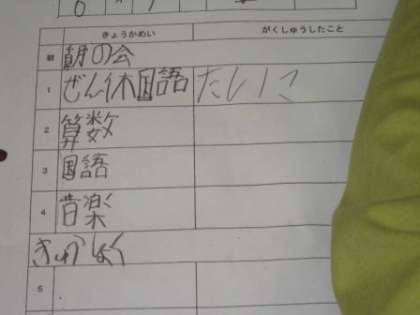 6
きょうかめい がくしゅうしたこと
朝 朝の会
1 ぜん休国語 たいいく
2 算数
3 国語
4 音楽
きゅうしょく
5